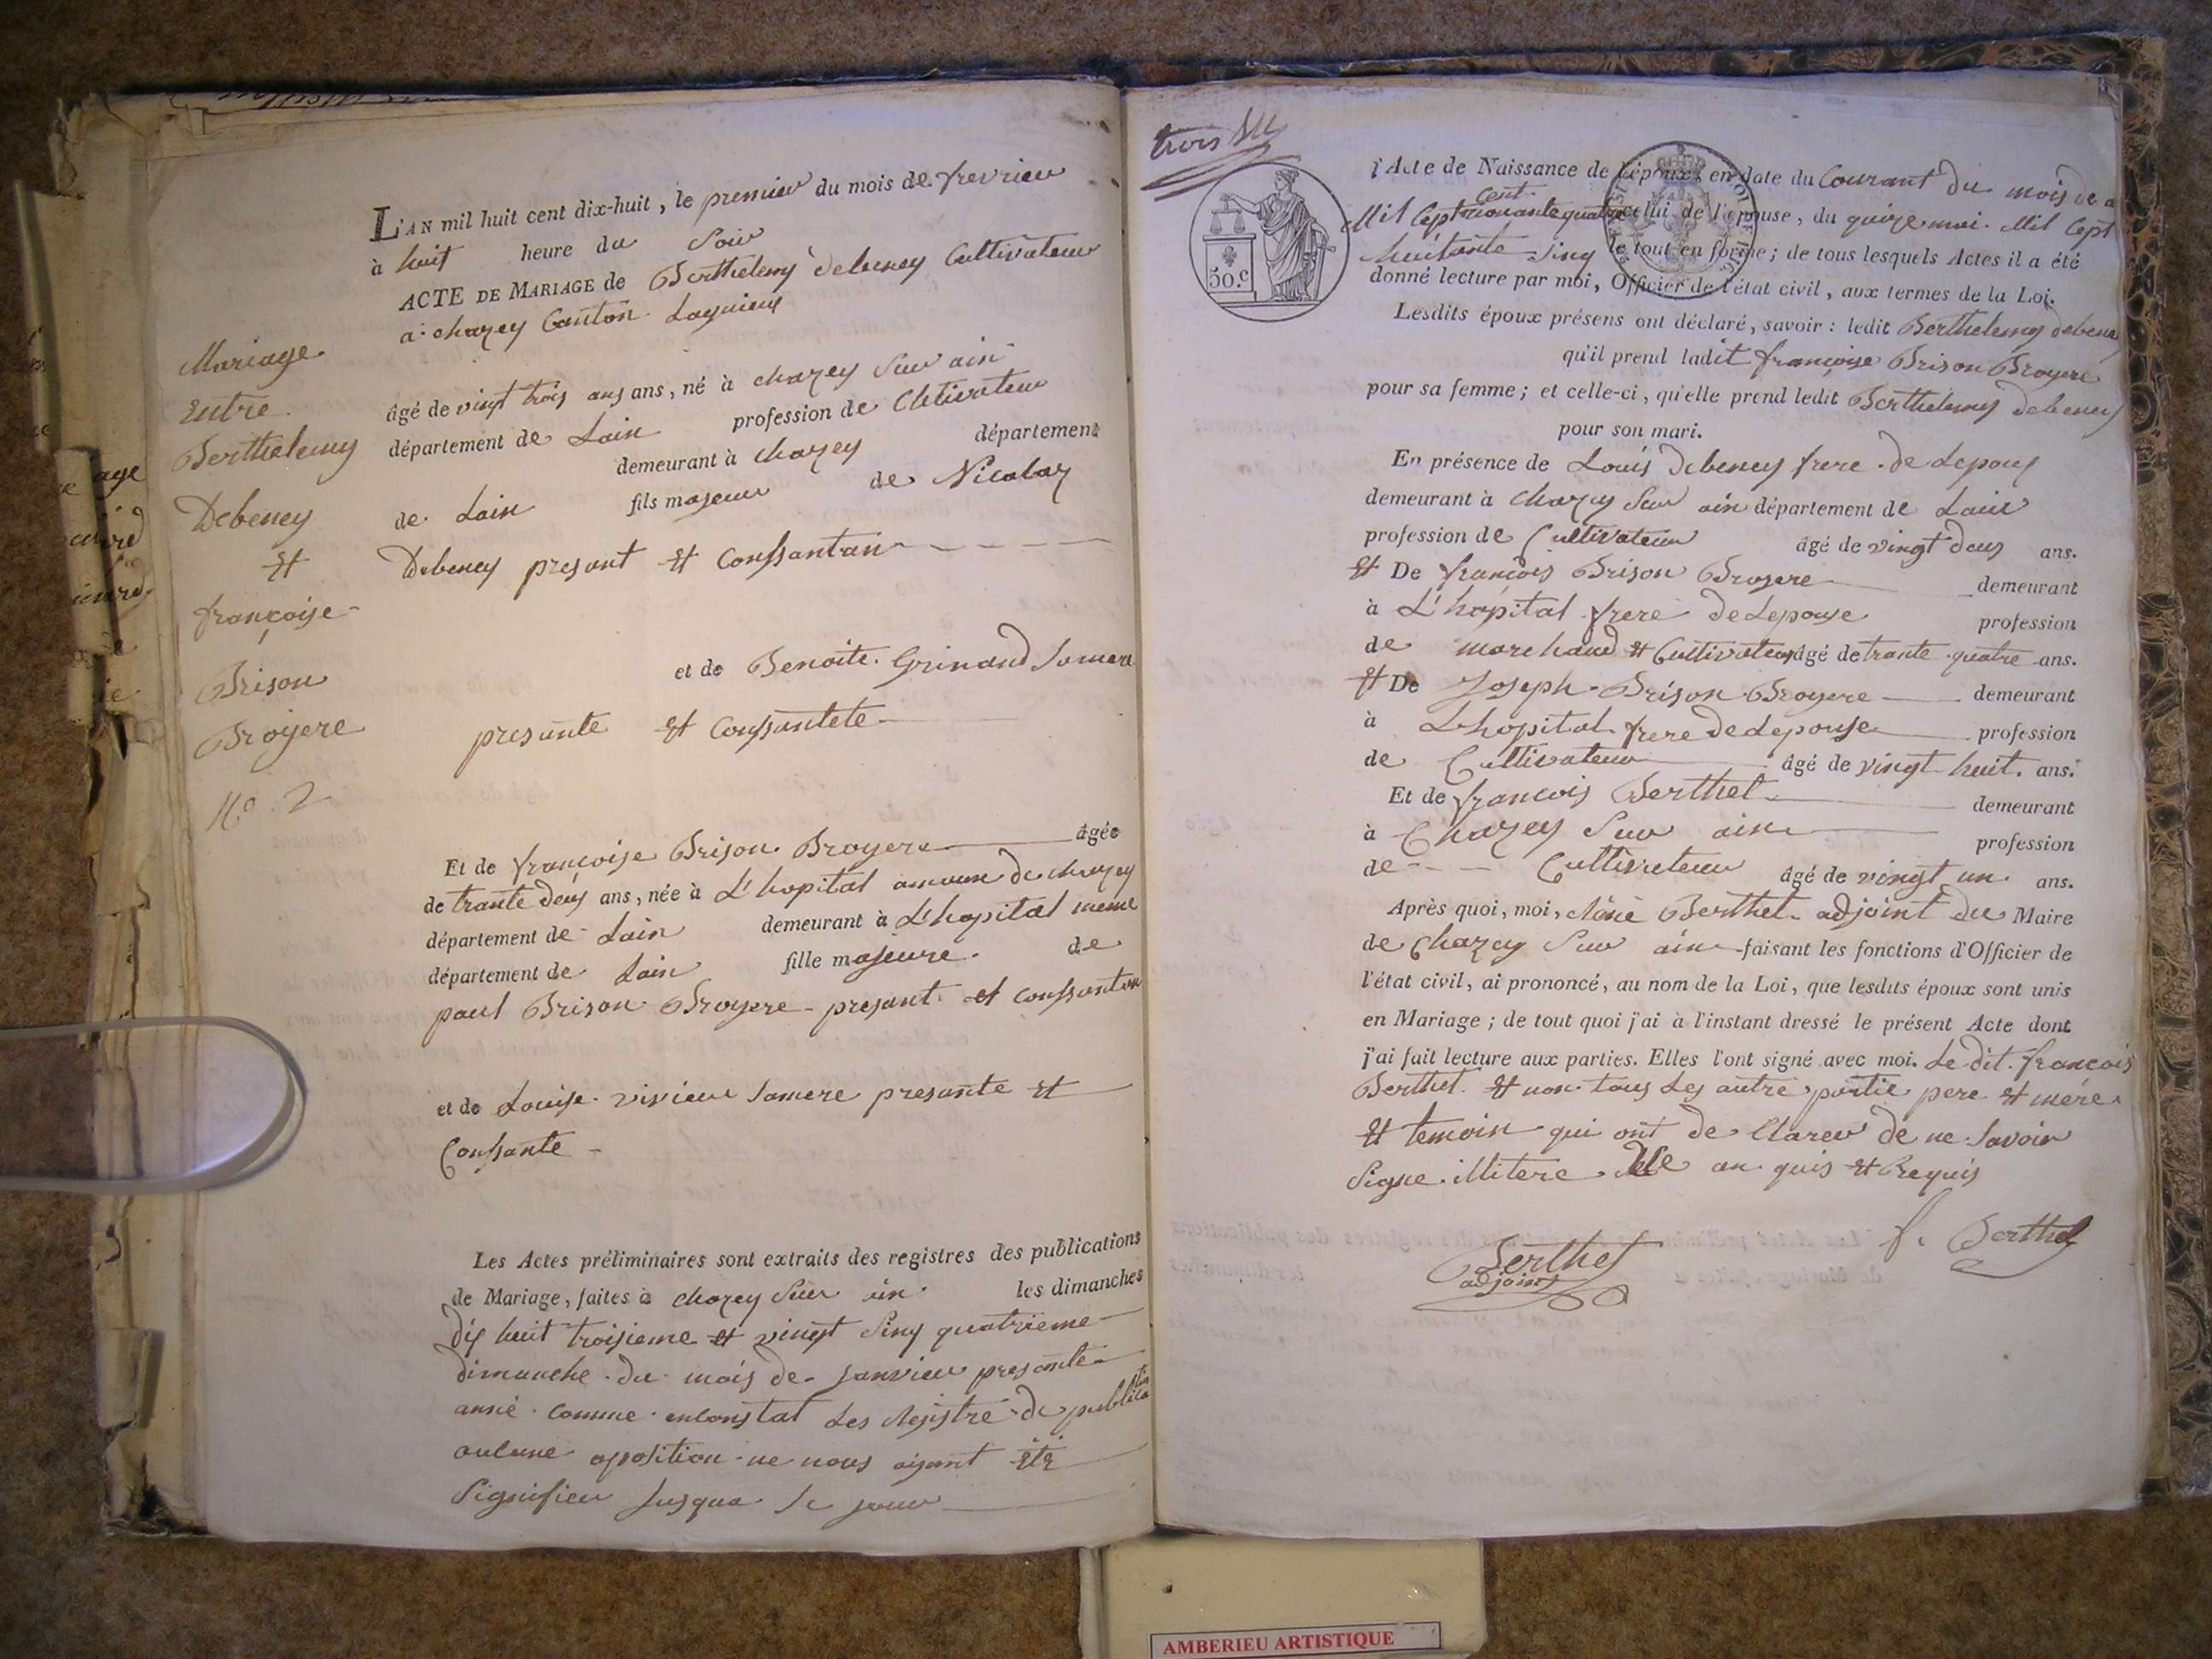 L'AN mil huit cent dix-huit, le premier du mois de fevrieu
à huit heure du Soir
ACTE DE MARIAGE de Berthelemy debeney Cultivateur
a chazey Canton Lagnieux
Mariage
Entre
Berthelemy
Debeney
Et
françoise
Brison
Broyere
No. 2
âgé de vingt trois ans ans, né à chazey Sur ain
département de Lain profession de Cltivateur
demeurant à chazey département
de Lain fils majeur de Nicolaz
Debeney presant Et Conssantan
et de Benoite Grinand Samere
presante Et Conssantete
Et de françoise Brison Broyere âgée
de trante deux ans, née à L'hopital de chazey
département de Lain demeurant à L'hopital meme
département de Lain fille majeure de
paul Brison Broyere presant et conssantan
et de Louise vivieur Samere presante Et
Conssante
Les Actes préliminaires sont extraits des registres des publications
de Mariage, faites à chazey Sur ain les dimanches
dix huit troisieme et vingt Sinq quatrieme
dimanche du mois de Janvieu presante
anné comme enconstat Les Rejistre de publication
aucune oposition ne nous aiyant Eté
Signifieu Jusqua Se jour
trois
50.c
l'Acte de Naissance de l'époux, en date du Courant du mois de
Mil Cept cent nonante quatre celui de l'épouse, du quinze mai Mil Cept
huitante Sinq le tout en forme; de tous lesquels Actes il a été
donné lecture par moi, Officier de l'état civil, aux termes de la Loi.
Lesdits époux présens ont déclaré, savoir: ledit Berthelemy debeney
qu'il prend ladit françoise Brison Broyere
pour sa femme; et celle-ci, qu'elle prend ledit Berthelemy debeney
pour son mari.
En présence de Louis Debeney frere de Lepoux
demeurant à Chazey Sur ain département de Lain
profession de Cultivateur âgé de vingt deux ans.
Et De françois Brison Broyere demeurant
à L'hopital frere de Lepouse profession
de marchand Et Cultivateur âgé de trante quatre ans.
Et De Joseph Brison Broyere demeurant
à L'hopital frere de Lepouse profession
de Cultivateur âgé de vingt huit ans.
Et de françois Berthet demeurant
à Chazey Sur ain profession
de Cultivateur âgé de vingt un ans.
Après quoi, moi, Berthet adjoint du Maire
de Chazey Sur ain faisant les fonctions d'Officier de
l'état civil, ai prononcé, au nom de la Loi, que lesdits époux sont unis
en Mariage; de tout quoi j'ai à l'instant dressé le présent Acte dont
j'ai fait lecture aux parties. Elles l'ont signé avec moi. Le dit françois
Berthet Et non tous Les autre partie pere Et mére
Et temoin qui ont de Clareu de ne Savoir
Signe illitere an quis Et Requis
Berthet
adjoint
f. Berthet
AMBERIEU ARTISTIQUE